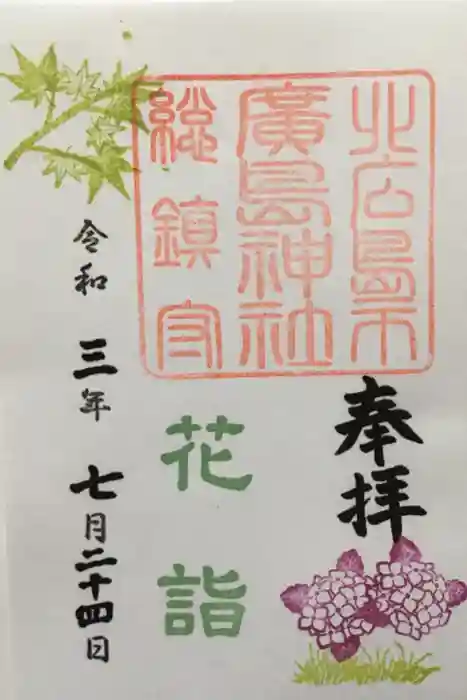 北広島市
廣島神社
総鎮守
奉拝
花詣
令和三年七月二十四日